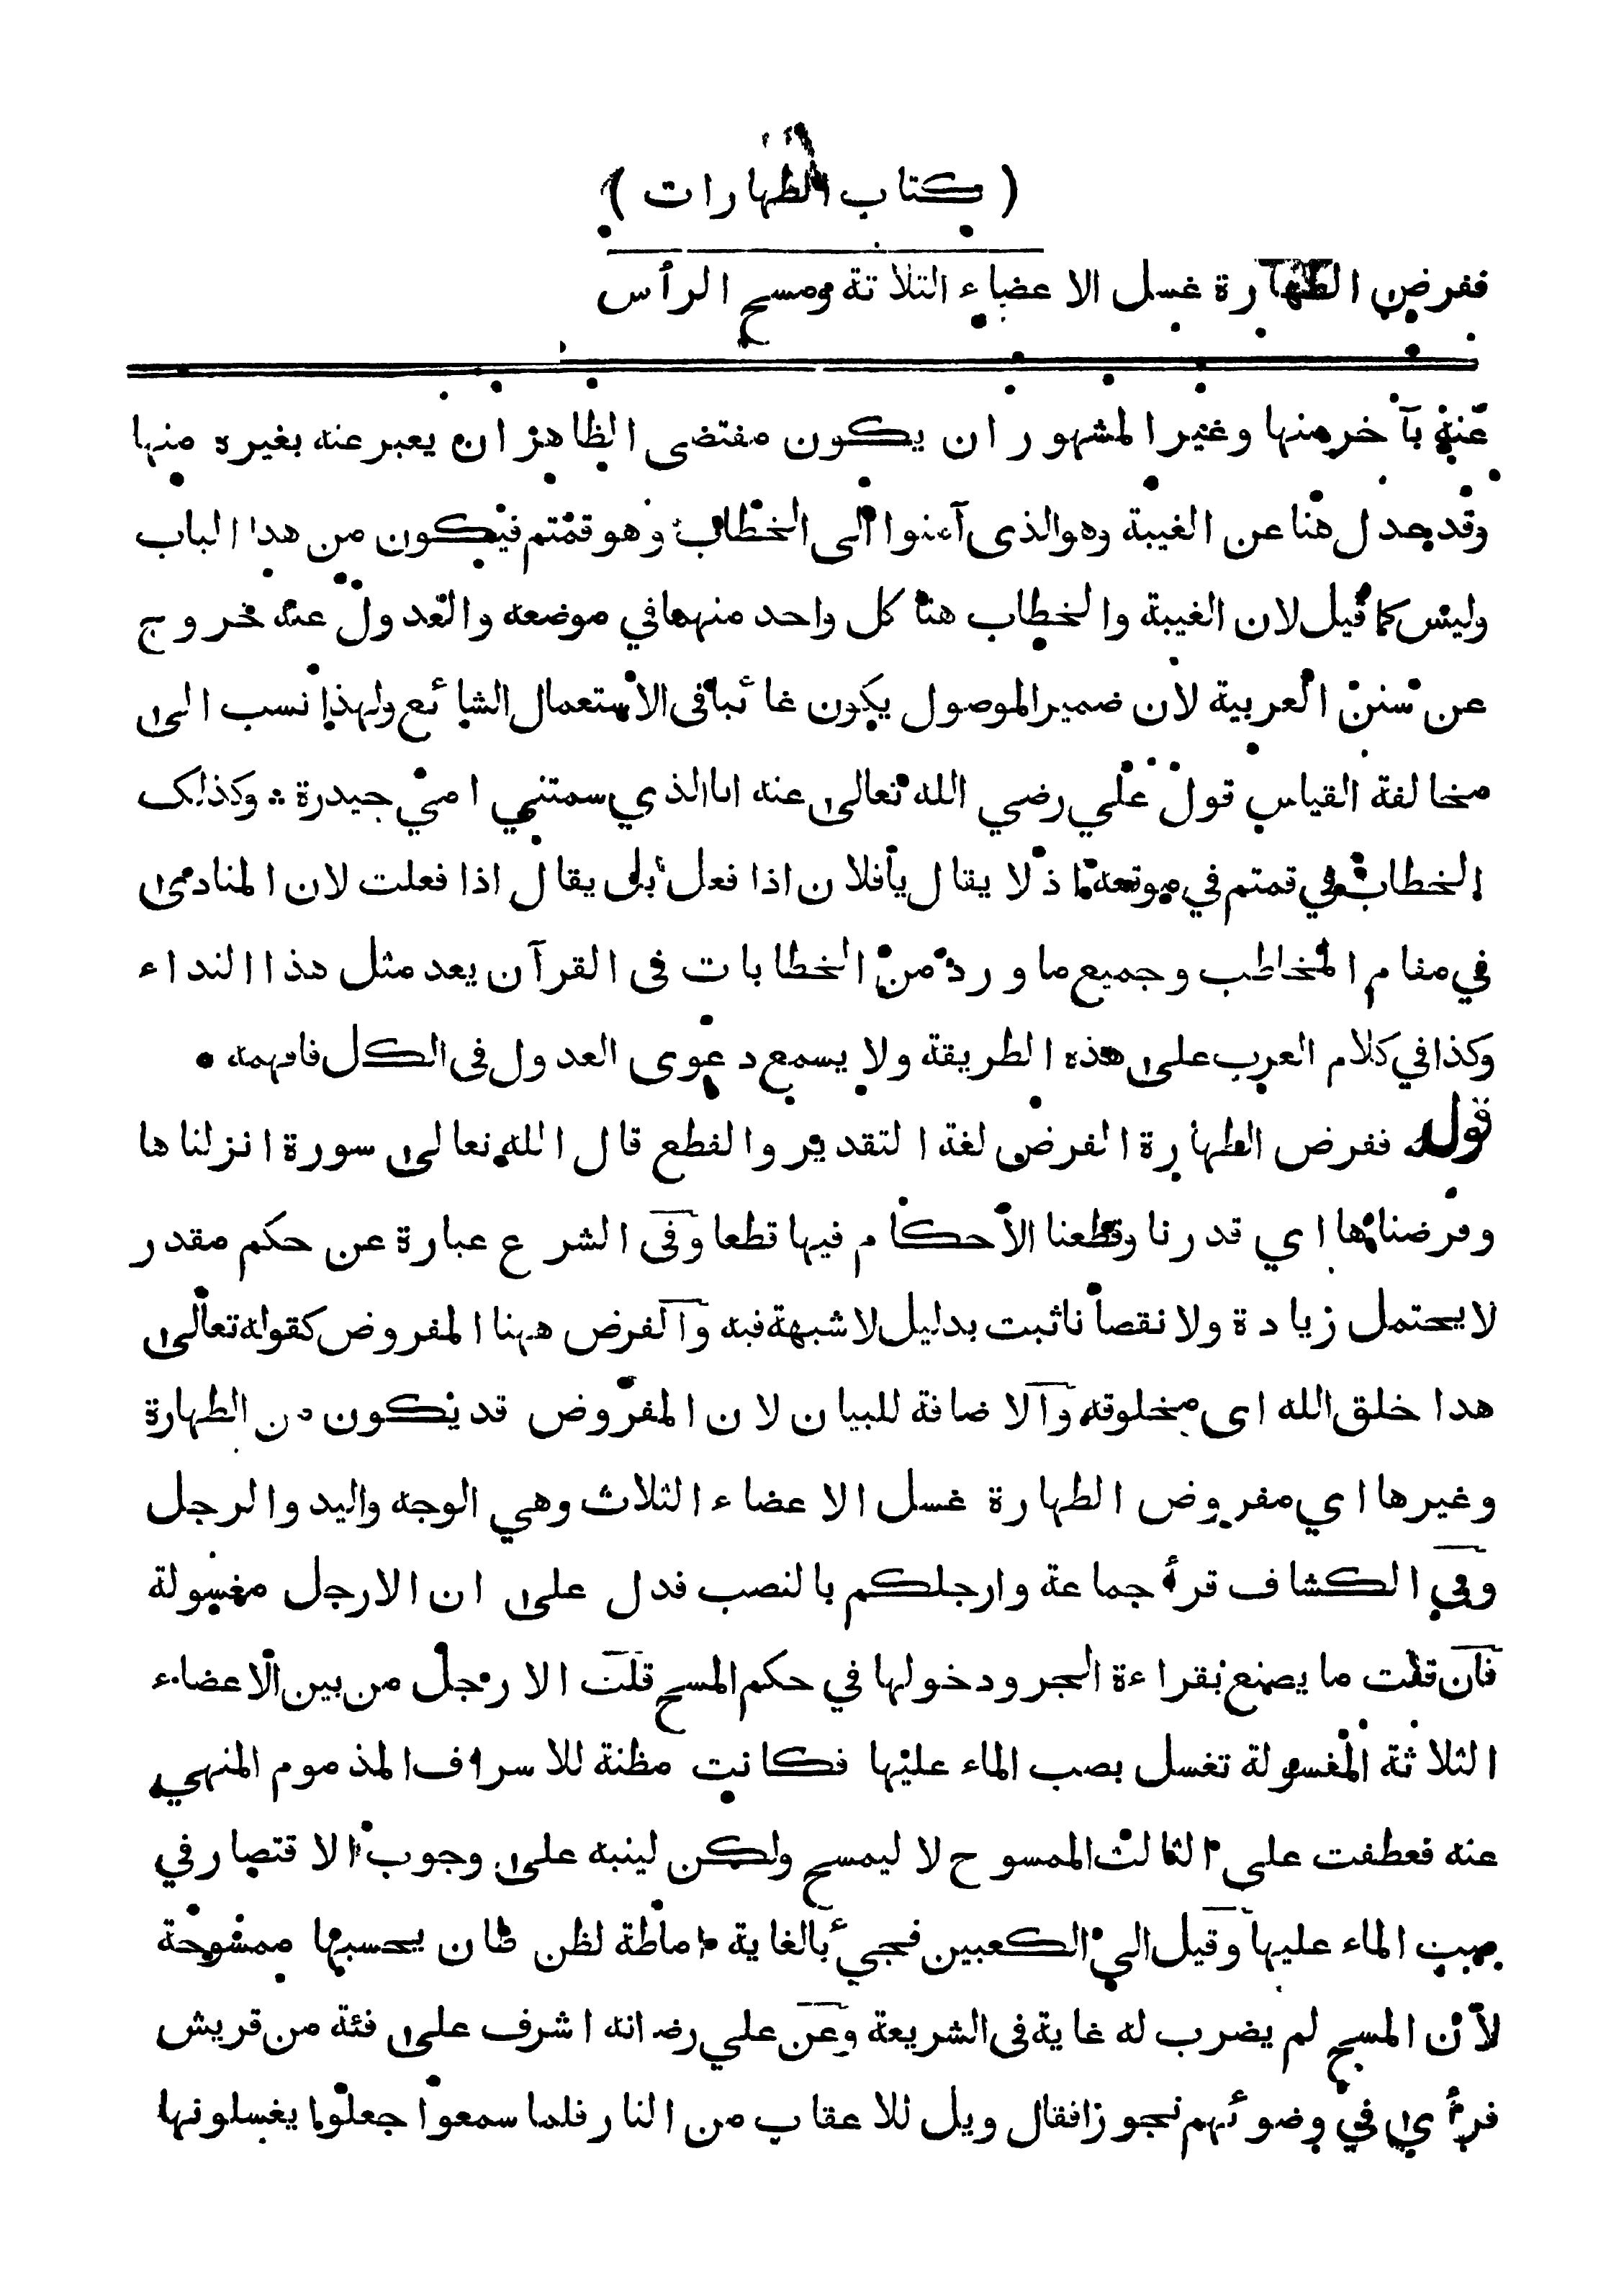 ( كتاب الطهارات )
ففرض الطهارة غسل الاعضاء الثلاثة ومسح الرأس
عنه بآخر منها وغير المشهور ان يكون مقتضى الظاهر ان يعبر عنه بغيره منها
وقد عدل هنا عن الغيبة وهو الذى آمنوا الى الخطاب وهو قمتم فيكون من هذا الباب
وليس كما قيل لان الغيبة والخطاب هنا كل واحد منهما في موضعه والعدول عنه خروج
عن سنن العربية لان ضمير الموصول يكون غائبا فى الاستعمال الشائع ولهذا نسب الى
مخالفة القياس قول علي رضي الله تعالى عنه انا الذي سمتني امي حيدرة ؞ وكذلك
الخطاب في قمتم في موقعه اذ لا يقال يا فلان اذا فعل بل يقال اذا فعلت لان المنادى
في مقام المخاطب وجميع ما ورد من الخطابات فى القرآن بعد مثل هذا النداء
وكذا في كلام العرب على هذه الطريقة ولا يسمع دعوى العدول فى الكل فافهمه •
قوله ففرض الطهارة الفرض لغة التقدير والقطع قال الله تعالى سورة انزلناها
وفرضناها اي قدرنا وقطعنا الاحكام فيها قطعا وفى الشرع عبارة عن حكم مقدر
لا يحتمل زيادة ولا نقصانا ثبت بدليل لا شبهة فيه والفرض ههنا المفروض كقوله تعالى
هذا خلق الله اى مخلوقه والاضافة للبيان لان المفروض قد يكون من الطهارة
وغيرها اي مفروض الطهارة غسل الاعضاء الثلاث وهي الوجه واليد والرجل
وفي الكشاف قرأ جماعة وارجلكم بالنصب فدل على ان الارجل مغسولة
فان قلت ما يصنع بقراءة الجر ودخولها في حكم المسح قلت الارجل من بين الاعضاء
الثلاثة المغسولة تغسل بصب الماء عليها فكانت مظنة للاسراف المذموم المنهي
عنه فعطفت على الثالث الممسوح لا ليمسح ولكن لينبه على وجوب الاقتصار في
صب الماء عليها وقيل الى الكعبين فجيئ بالغاية اماطة لظن ظان يحسبها ممسوحة
لان المسح لم يضرب له غاية فى الشريعة وعن علي رضـ انه اشرف على فئة من قريش
فرأى في وضوئهم تجوزا فقال ويل للاعقاب من النار فلما سمعوا جعلوا يغسلونها